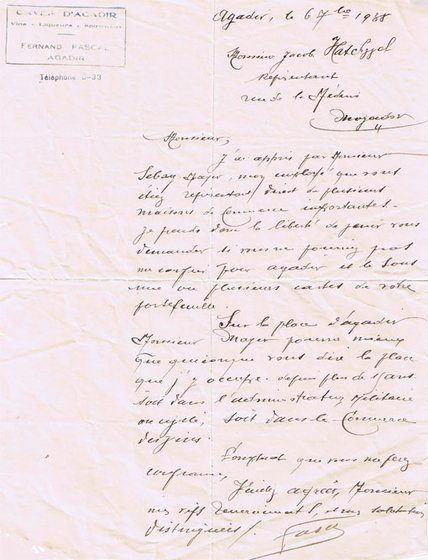 CAVES D'AGADIR
Vins - Liqueurs - Spiritueux
FERNAND PASCAL
AGADIR
Téléphone 0-33
Agadir, le 6 7bre 1938
Monsieur Jacob Hatchuel
Représentant
rue de la
Mogador
Monsieur,
J'ai appris par Monsieur
Sebag Mayer, mon employé que vous
étiez représentant direct de plusieurs
maisons de Commerce importantes.
je prends donc la liberté de venir vous
demander si vous ne pourriez pas
me confier pour agadir et le Sous
une ou plusieurs cartes de votre
portefeuille.
Sur la place d'agadir
Monsieur Mayer pourra mieux
que quiconque vous dire la place
que j'y occupe depuis plus de ans
soit dans l'administration Militaire
ou civile, soit dans le Commerce
des vins.
que vous me ferez
confiance,
Veuillez agréer, Monsieur
mes vifs et mes salutations
distinguées.